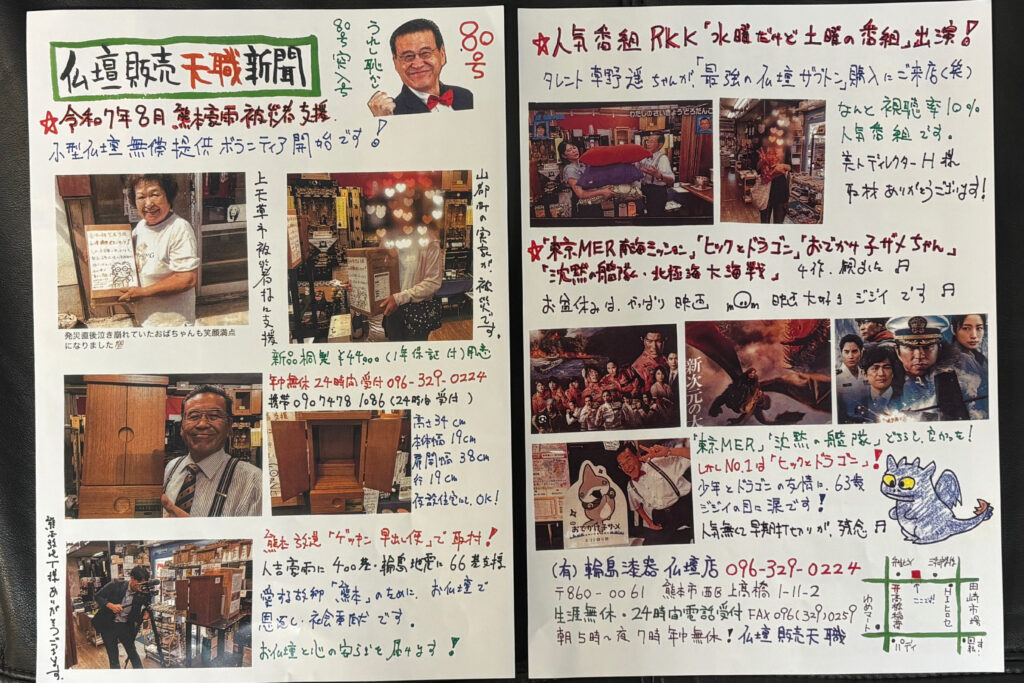 80号
うれし恥かし
80号突入号
仏壇販売天職新聞
☆令和7年8月 熊本豪雨被災者支援.
小型仏壇無償提供ボランティア開始です!
上天草市被災者様に支援
山都町の実家が、被災です。
発災直後泣き崩れていたおばちゃんも笑顔満点
になりました
新品桐製 ¥44,900(1年保証付)用意
年中無休24時間受付 096-329-0224
携帯 090 7478 1086(24時間受付)
高さ34cm
本体幅19cm
扉開幅38cm
行19cm
仮設住宅にOK!
熊本放送「ゲツキン早出し便」で取材!
人吉豪雨に400基・輪島地震に66基支援
愛する故郷「熊本」のために、お仏壇で
恩返し・社会貢献です。
お仏壇と心の安らぎを届けます!
熊本放送T様ありがとうございます。
☆人気番組RKK「水曜だけど土曜の番組」出演!
タレント草野遥ちゃんが「最強の仏壇ザブトン」購入にご来店(笑)
わたしのさいきょうどろだんご
なんと視聴率10%
人気番組です。
美人ディレクターH様
取材ありがとうございます!
☆「東京MER南海ミッション」「ヒックとドラゴン」「おでかけ子ザメちゃん」
「沈黙の艦隊・北極海大海戦」4作、観ました♬
お盆休みは、やっぱり映画 m○m 映画大好きジジイです♬
新次元の
おでかけ子ザメ
「東京MER」「沈黙の艦隊」どちらも良かった!
しかしNO.1は「ヒックとドラゴン」!
少年とドラゴンの友情に、63歳
ジジイの目に涙です!
人気無くて早期打ち切りが、残念♬
(有)輪島漆器仏壇店 096-329-0224
〒860-0061 熊本市西区上高橋1-11-2
生涯無休・24時間電話受付 FAX 096(329)0259
朝5時〜夜7時 年中無休!仏壇販売天職
ここよ!
高橋稲荷
ゆめマート
田崎市場